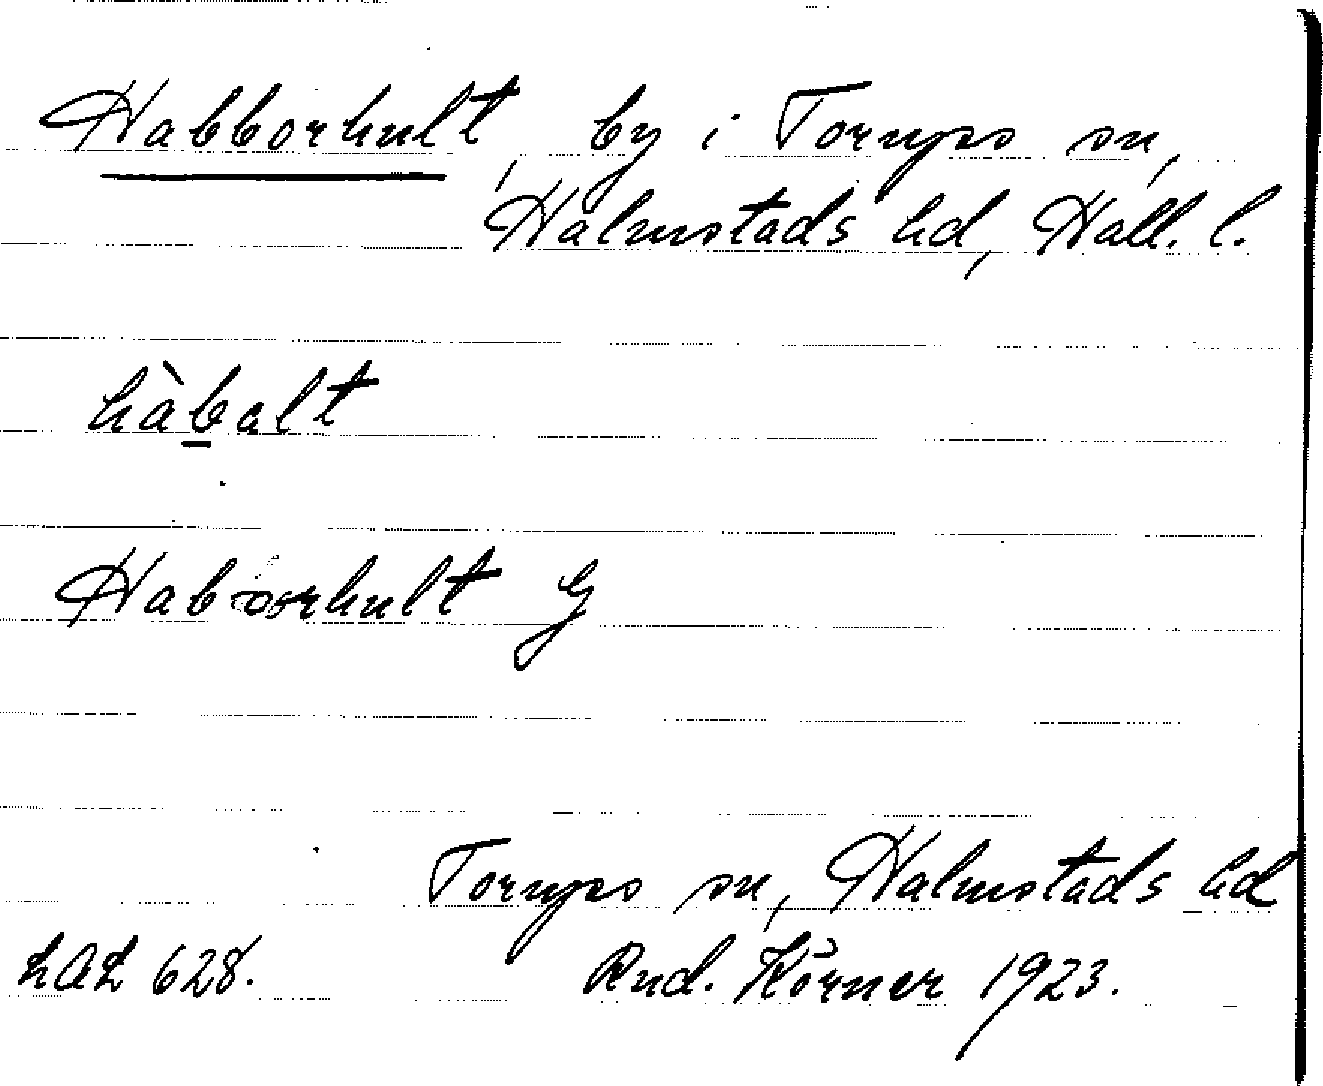 Habborhult, by i Torups sn,
Halmstads hd, Hall. l.
hàbalt
Haborhult G
Torups sn, Halmstads hd
LAL 628. Rud. Körner 1923.